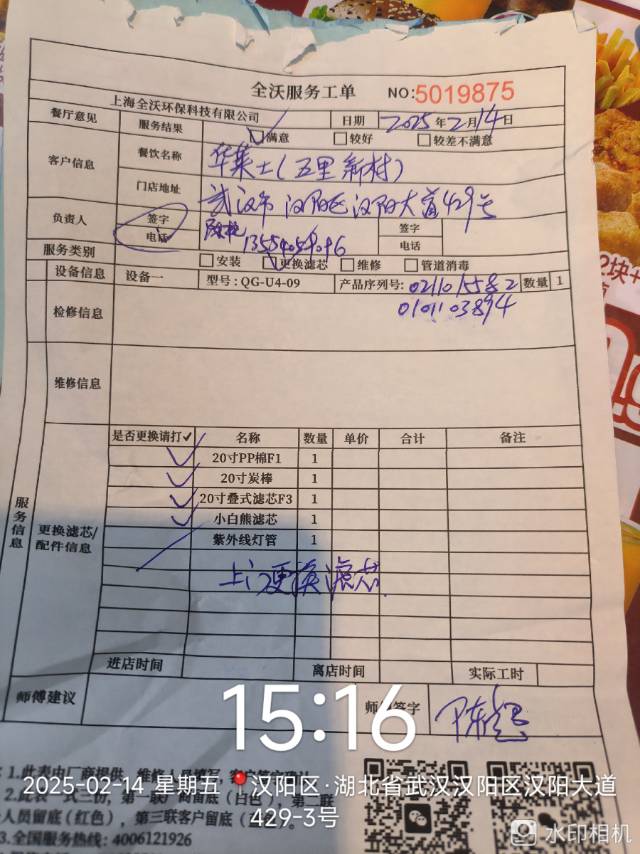 全沃服务工单 NO:5019875
上海全沃环保科技有限公司 日期 2025年2月14日
餐厅意见 服务结果 满意 较好 较差不满意
客户信息 餐饮名称 华莱士(五里新村)
门店地址 武汉市汉阳区汉阳大道429号
负责人 签字 签字
电话 电话
服务类别 安装 更换滤芯 维修 管道消毒
设备信息 设备一 型号:QG-U4-09 产品序列号:0211015582 数量 1
0101103894
检修信息
维修信息
服务信息
更换滤芯/配件信息
是否更换请打✓ 名称 数量 单价 合计 备注
✓ 20寸PP棉F1 1
✓ 20寸炭棒 1
✓ 20寸叠式滤芯F3 1
✓ 小白熊滤芯 1
紫外线灯管 1
上门更换滤芯
进店时间 离店时间 实际工时
师傅建议 签字
15:16
1.此表由厂商提供,维修人员填写
2025-02-14 星期五 汉阳区·湖北省武汉汉阳区汉阳大道429-3号
2.此表一式三份,第一联厂商留底(白色),第二联
人员留底(红色),第三联客户留底
3.全国服务热线:4006121926
水印相机